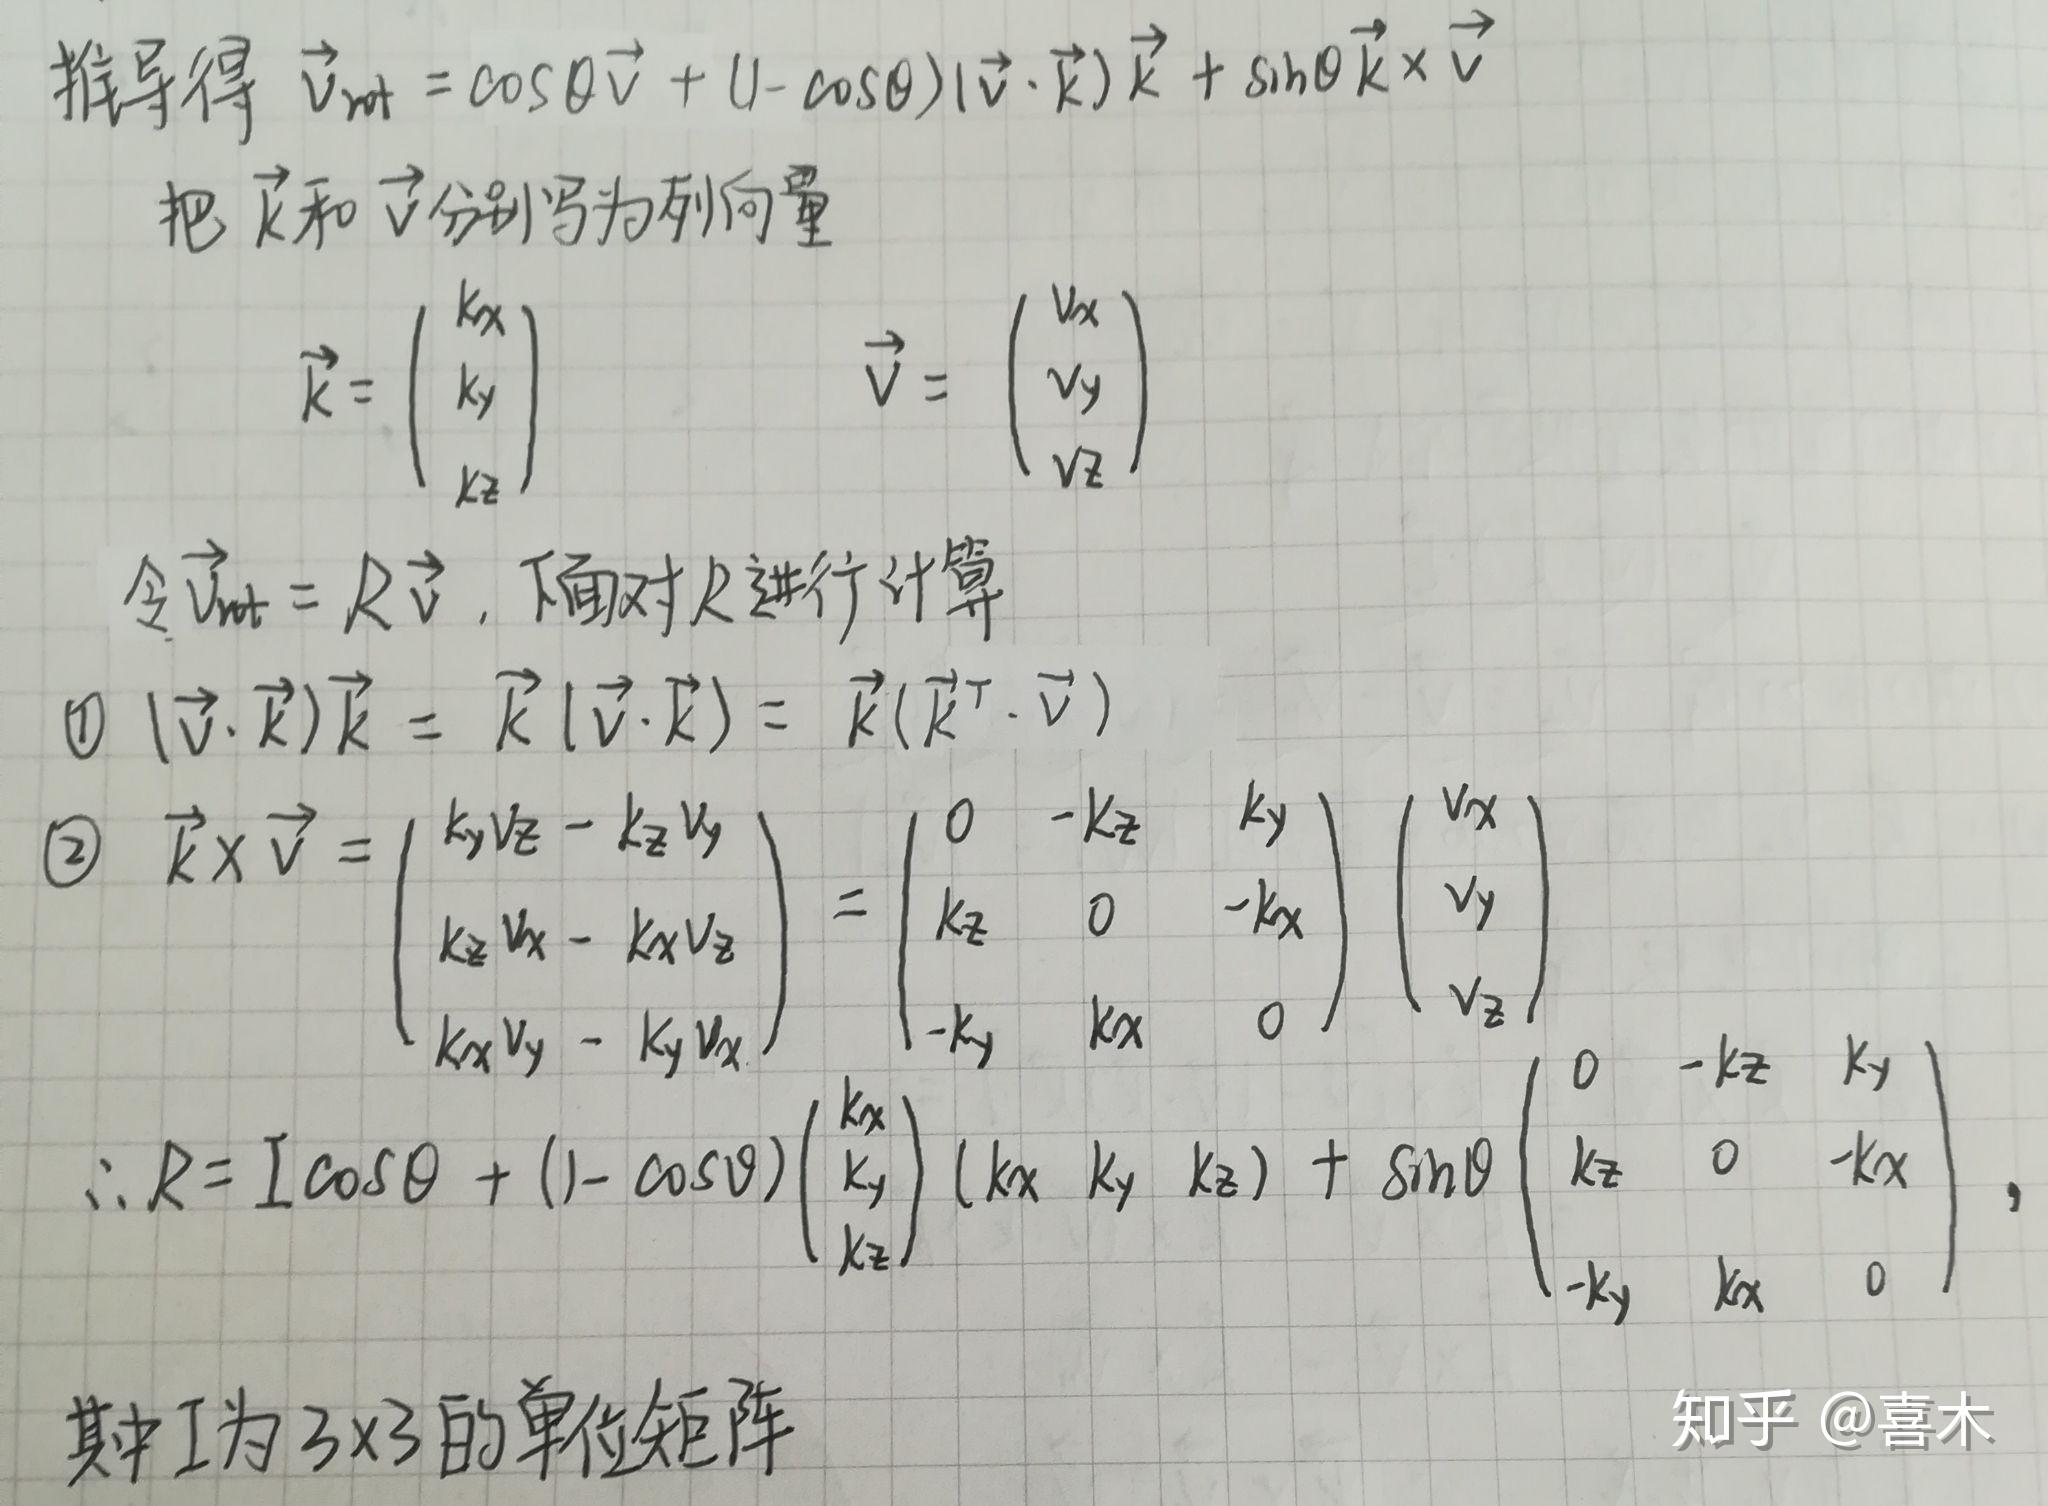 推导得 v⃗rot = cosθv⃗ + (1-cosθ)(v⃗·k⃗)k⃗ + sinθk⃗×v⃗
把 k⃗ 和 v⃗ 分别写为列向量
k⃗ = (kx ky kz) v⃗ = (vx vy vz)
令 v⃗rot = Rv⃗, 下面对R进行计算
① (v⃗·k⃗)k⃗ = k⃗(v⃗·k⃗) = k⃗(k⃗ᵀ·v⃗)
② k⃗×v⃗ = (kyvz - kzvy kzvx - kxvz kxvy - kyvx) = (0 -kz ky kz 0 -kx -ky kx 0) (vx vy vz)
∴ R = I cosθ + (1-cosθ) (kx ky kz) (kx ky kz) + sinθ (0 -kz ky kz 0 -kx -ky kx 0),
其中I为3×3的单位矩阵
知乎 @喜木